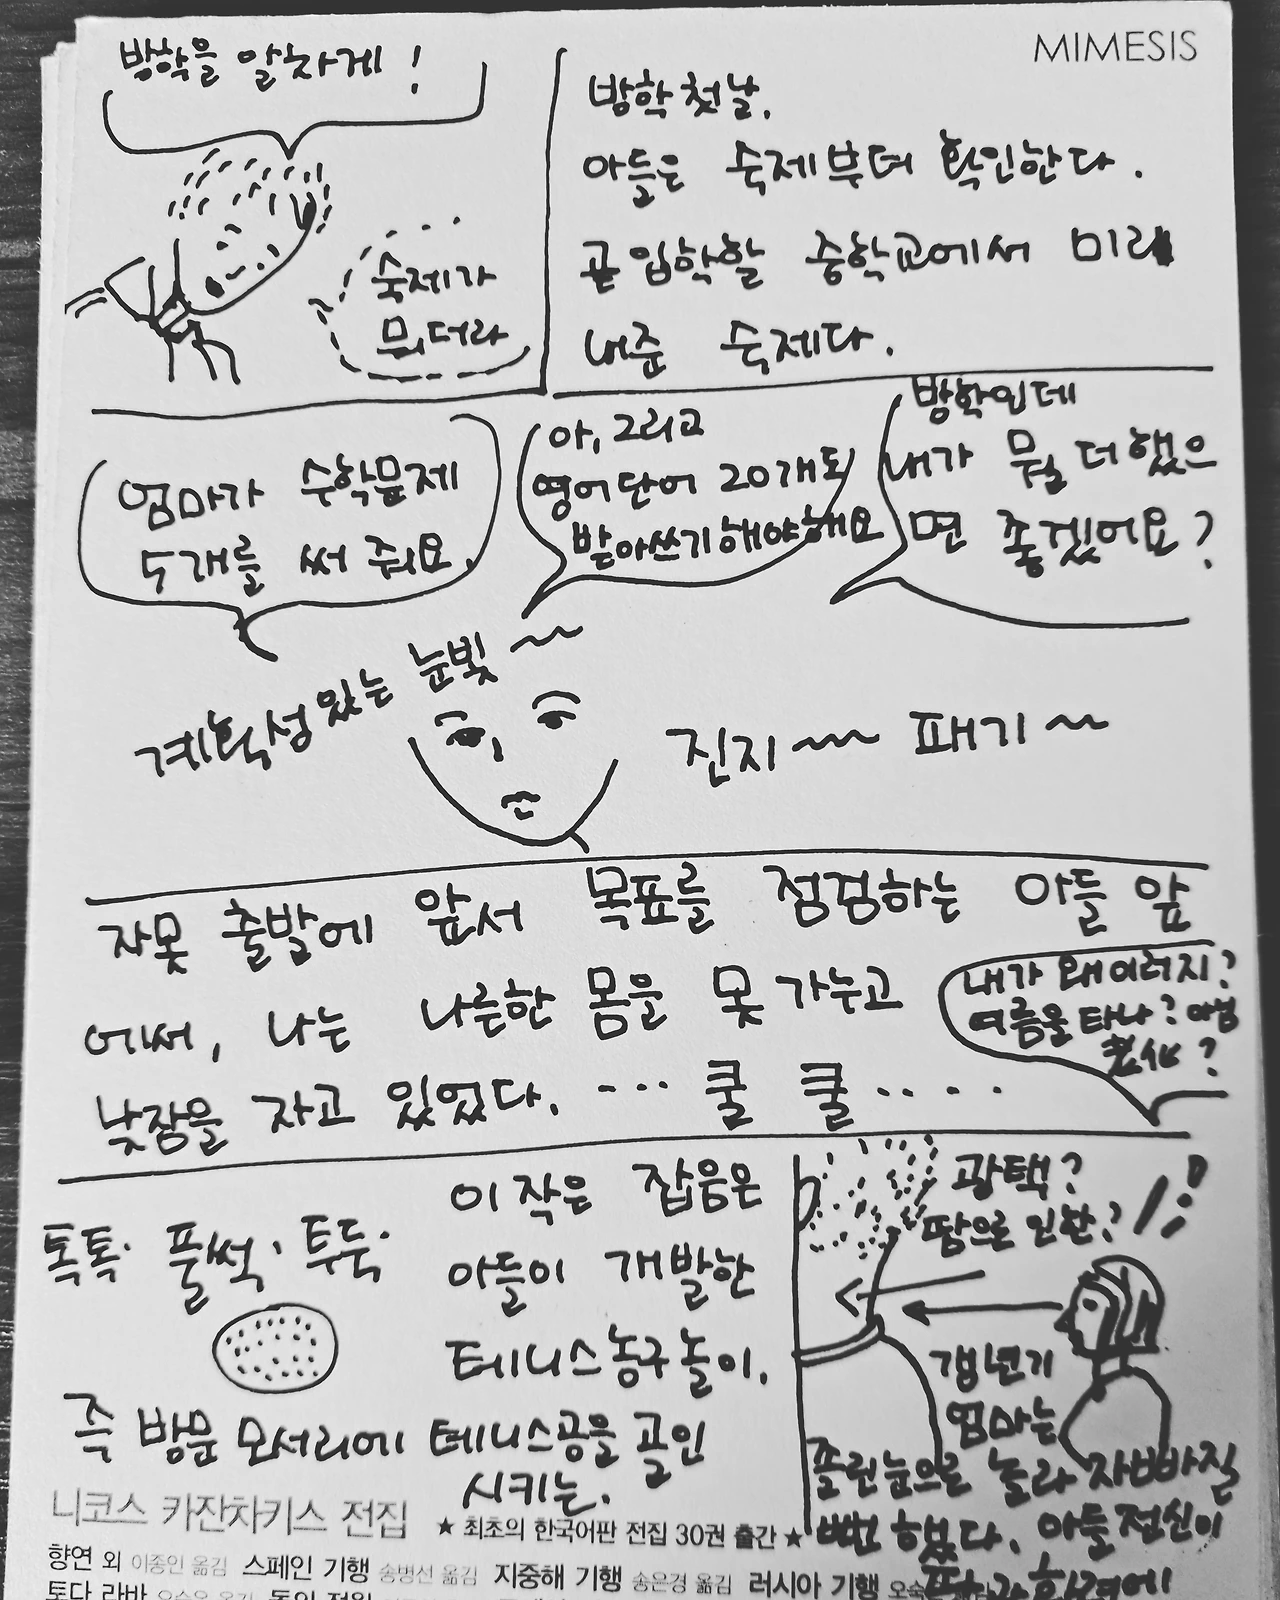 MIMESIS
방학을 알차게!
숙제가
뭐더라
방학 첫날.
아들은 숙제부터 확인한다.
곧 입학할 중학교에서 미리
내준 숙제다.
엄마가 수학문제
5개를 써 줘요.
아, 그리고
영어단어 20개도
받아쓰기해야해요
방학인데
내가 뭘 더 했으
면 좋겠어요?
계획성있는 눈빛~
진지~~ 패기~
자못 출발에 앞서 목표를 점검하는 아들 앞
에서, 나는 나른한 몸을 못 가누고
낮잠을 자고 있었다. ... 쿨 쿨....
내가 왜 이러지?
여름을 타나?
老化?
톡톡· 풀썩· 투둑·
이 작은 잡음은
아들이 개발한
테니스농구놀이.
즉 방문 모서리에 테니스공을 골인
시키는.
광택?
땀으로 인한?
갱년기
엄마는
졸린눈으로 놀라 자빠질
뻔 했다. 아들 정신이
니코스 카잔차키스 전집
★ 최초의 한국어판 전집 30권 출간 ★
향연 외 이종인 옮김 스페인 기행 송병선 옮김 지중해 기행 송은경 옮김 러시아 기행
토다 라바